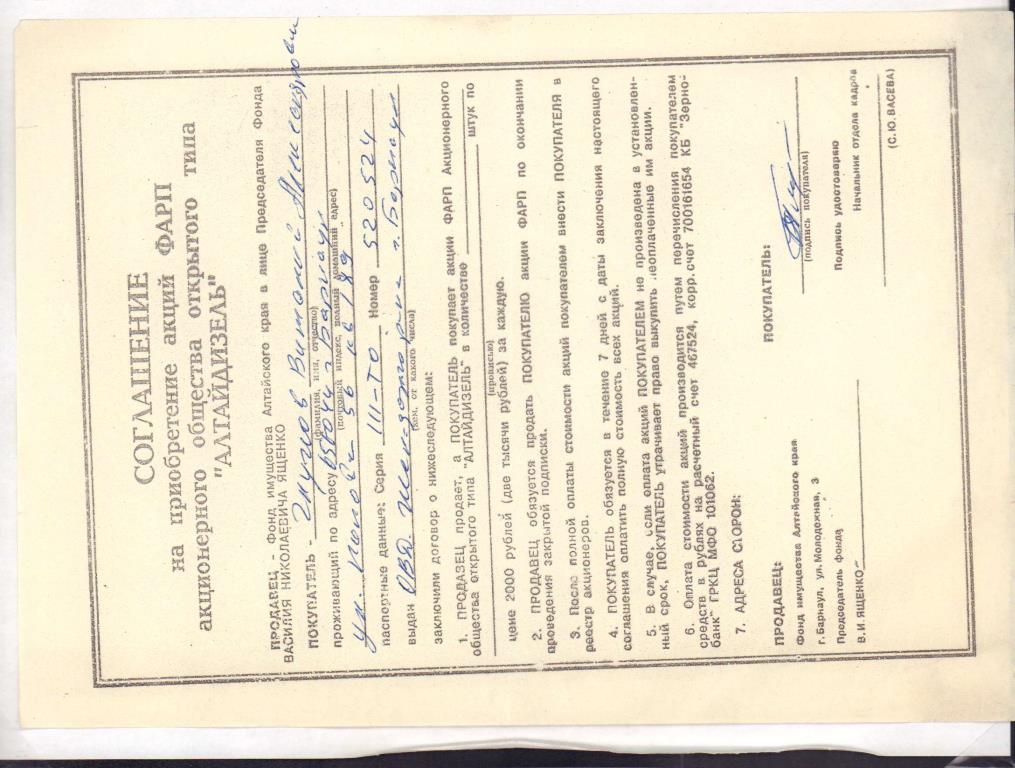 СОГЛАШЕНИЕ
на приобретение акций ФАРП
акционерного общества открытого типа
"АЛТАЙДИЗЕЛЬ"
ПРОДАВЕЦ - Фонд имущества Алтайского края в лице Председателя Фонда
ВАСИЛИЯ НИКОЛАЕВИЧА ЯЩЕНКО
ПОКУПАТЕЛЬ - Глухов Виталий
(фамилия, имя, отчество)
проживающий по адресу 656044 г Барнаул
(почтовый индекс, полный домашний адрес)
ул. Попова - 56 кв 189
паспортные данные: Серия III-ТО Номер 520524
выдан ОВД г. Барнаул
(кем, от какого числа)
заключили договор о нижеследующем:
1. ПРОДАВЕЦ продает, а ПОКУПАТЕЛЬ покупает акции ФАРП Акционерного
общества открытого типа "АЛТАЙДИЗЕЛЬ" в количестве штук по
(прописью)
цене 2000 рублей (две тысячи рублей) за каждую.
2. ПРОДАВЕЦ обязуется продать ПОКУПАТЕЛЮ акции ФАРП по окончании
проведения закрытой подписки.
3. После полной оплаты стоимости акций покупателем внести ПОКУПАТЕЛЯ в
реестр акционеров.
4. ПОКУПАТЕЛЬ обязуется в течение 7 дней с даты заключения настоящего
соглашения оплатить полную стоимость всех акций.
5. В случае, если оплата акций ПОКУПАТЕЛЕМ не произведена в установлен-
ный срок, ПОКУПАТЕЛЬ утрачивает право выкупить неоплаченные им акции.
6. Оплата стоимости акций производится путем перечисления покупателем
средств в рублях на расчетный счет 467524, корр. счет 700161654 КБ "Зерно-
банк" ГРКЦ МФО 101062.
7. АДРЕСА СТОРОН:
ПРОДАВЕЦ:
Фонд имущества Алтайского края
г. Барнаул, ул. Молодежная, 3
Председатель фонда
В. И. ЯЩЕНКО
ПОКУПАТЕЛЬ:
(подпись покупателя)
Подпись удостоверяю
Начальник отдела кадров
(С. Ю. ВАСЕВА)